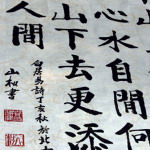 心水自間何
山下去更添
人間
白居易詩丁亥秋於北
山松書